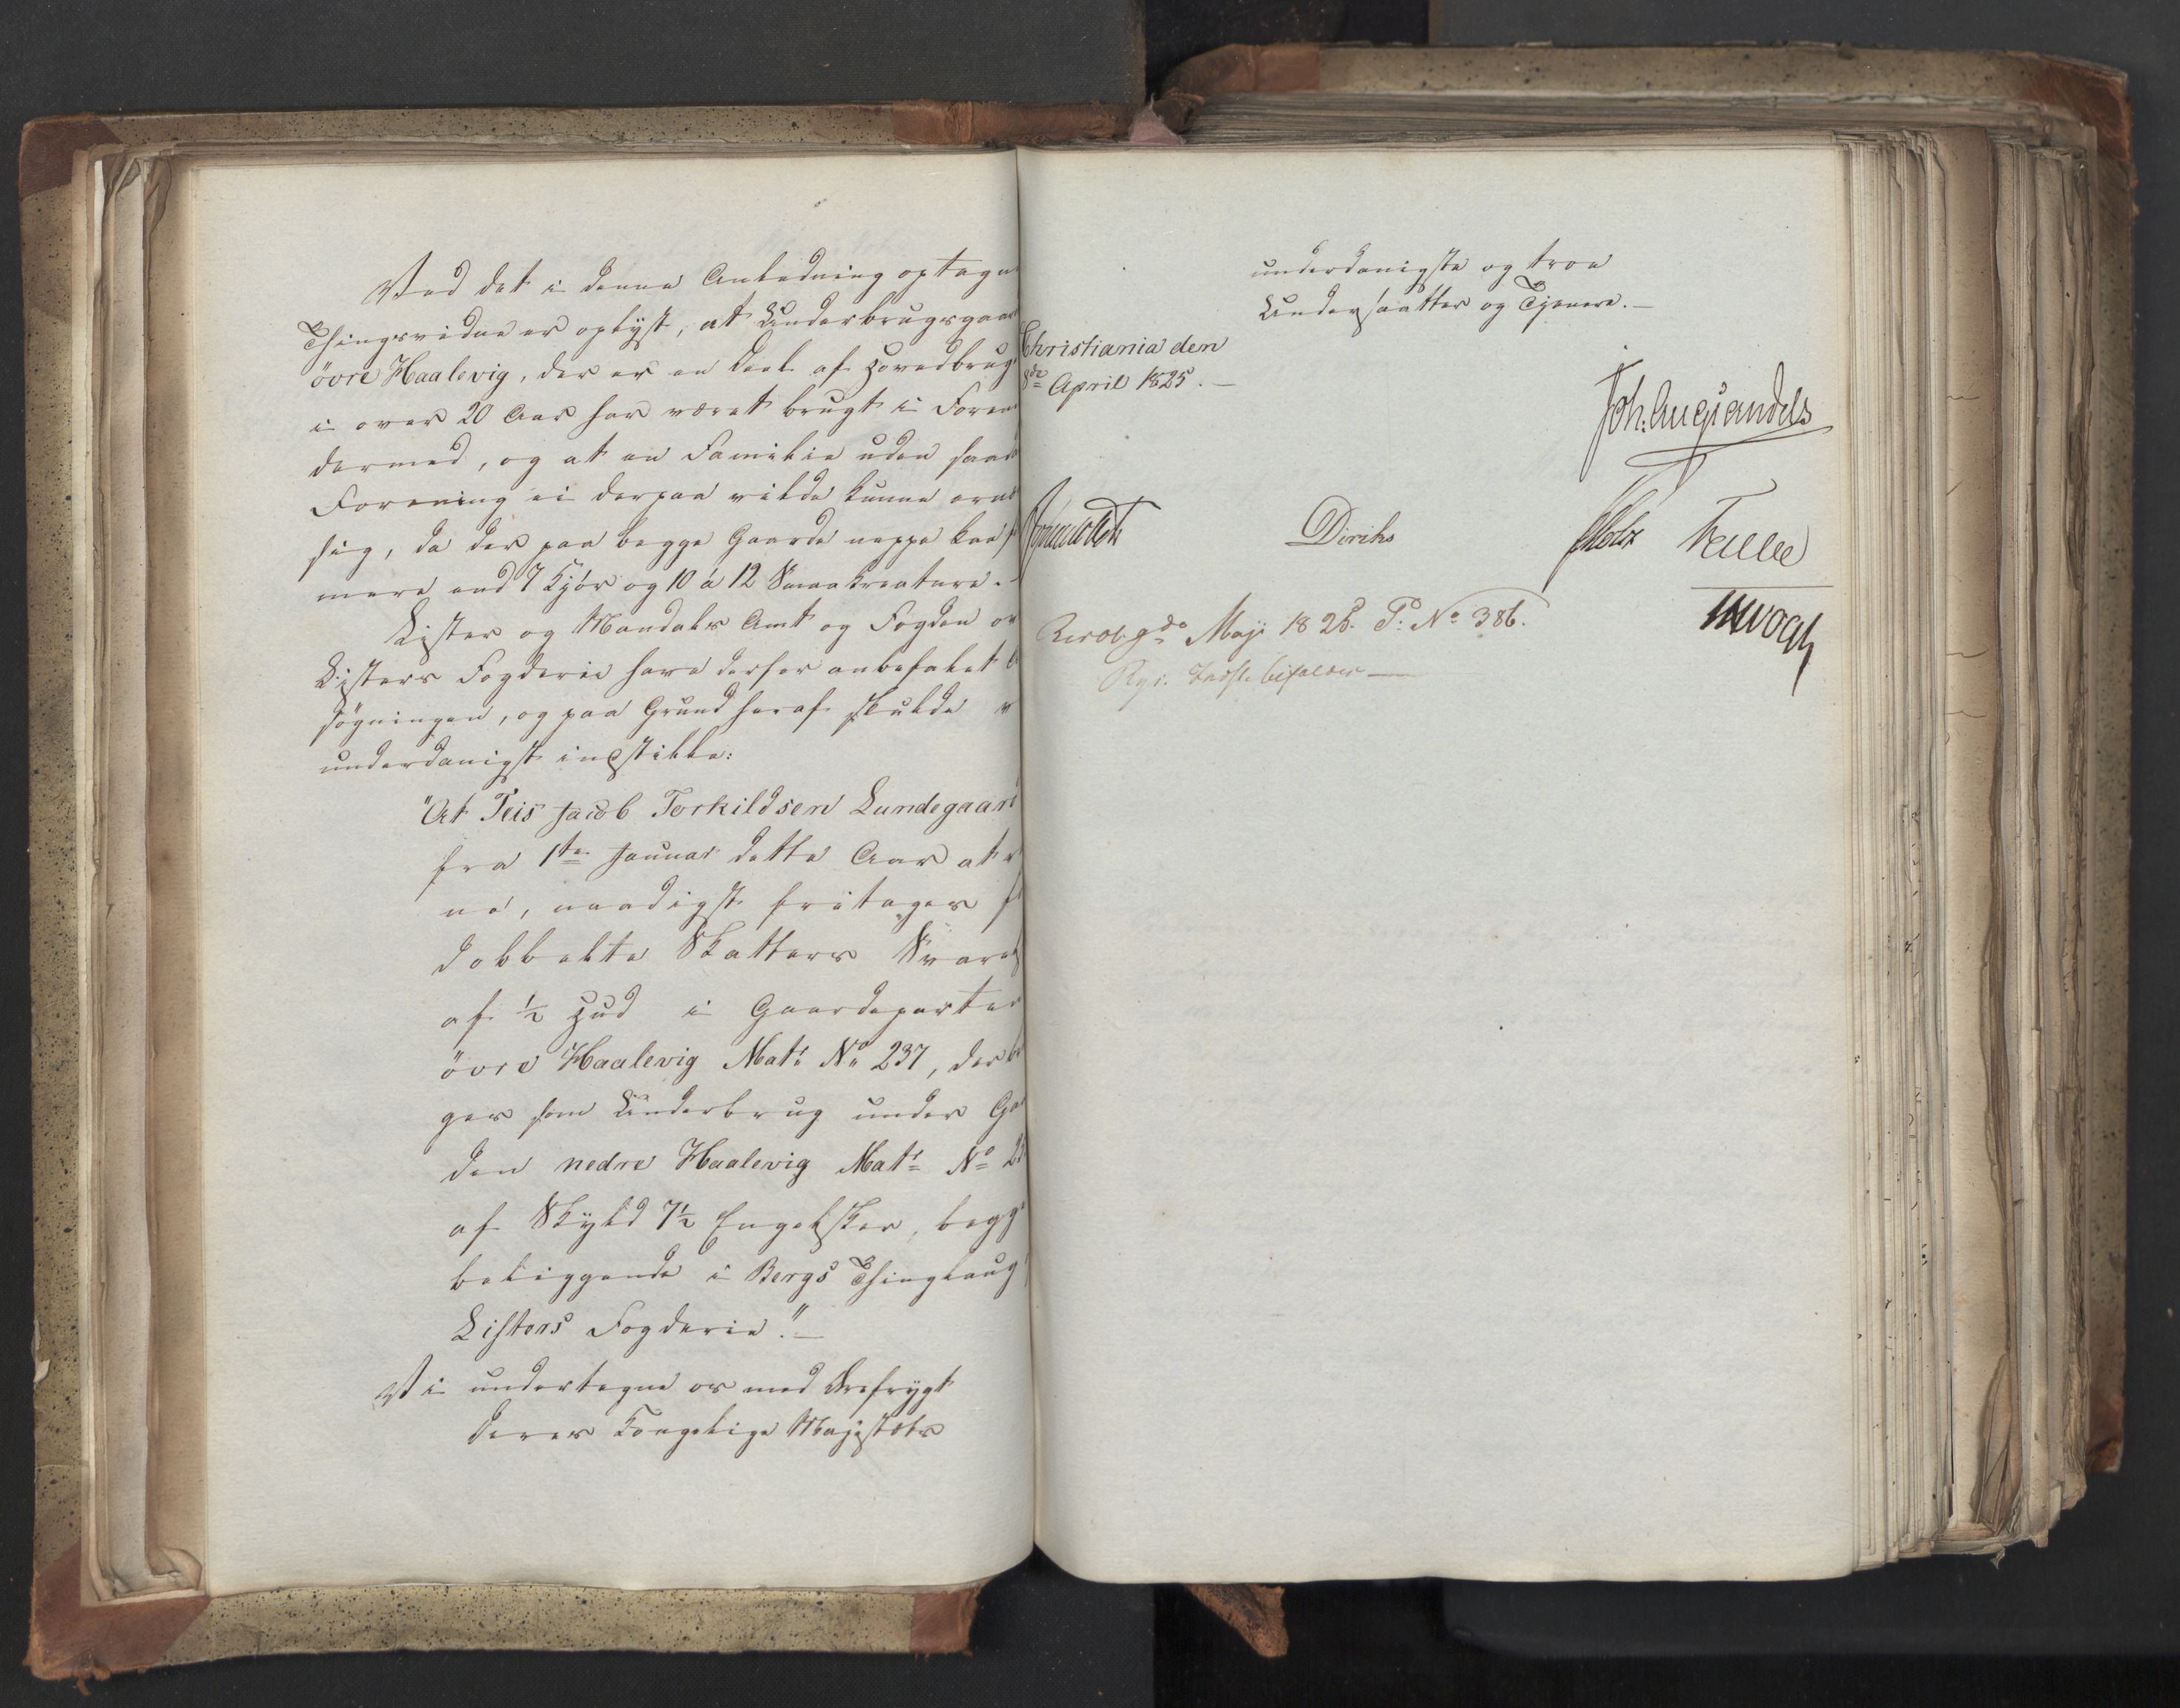 Ved det i denne Anledning optagne
Thingsvidne er oplyst, at Underbrugsgaar
övre Haalevig, der er en Deel af Hovedbrug
i over 20 Aar har været brugt i Foren
dermed, og at en Familie uden saad
Forening ei derpaa vilde kunne ernæ
sig, da der paa begge Gaarde neppe kan
mere end 7 Kjör og 10 à 12 Smaakreature. -
Lister og Mandals Amt og Fogden o
Listers Fogderie have derfor anbefalet
søgningen, og paa Grund heraf skulde v
underdanigst indstille:
"At Teis Jacob Torkildsen Lundegaar
fra 1ste Januar dette Aar at r
ne, naadigst fritages f
dobbelte Skatters Svarel
af ½ Hud i Gaardeparten
övre Haalevig Matr No 237, der b
ges som Underbrug under Ga
den nedre Haalevig Matr No 2
af Skyld 7½ Engelsker, begge
beliggende i Bergs Thinglaug
Listers Fogderie." -
Vi undertegne os med Ærefrygt
Deres Kongelige Majestæts
underdanigste og troe
Undersaatter og Tjenere. -
Christiania den
8de April 1825. -
Joh: Aug Sandels
Diriks
Motz Falbe
JHVogt
Resol. 9de Maji 1825. P: No 386.
Rgs. Indst. bifaldes -